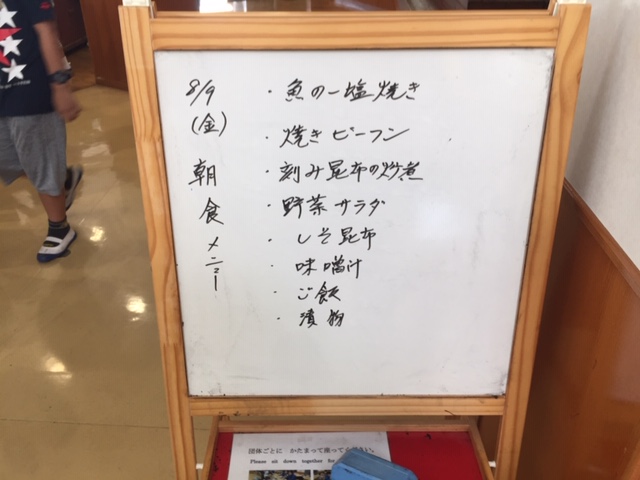 8/9
(金)
朝食メニュー
・魚の一塩焼き
・焼きビーフン
・刻み昆布の炒煮
・野菜サラダ
・しそ昆布
・味噌汁
・ご飯
・漬物
団体ごとに かたまって座ってください。
Please sit down together for